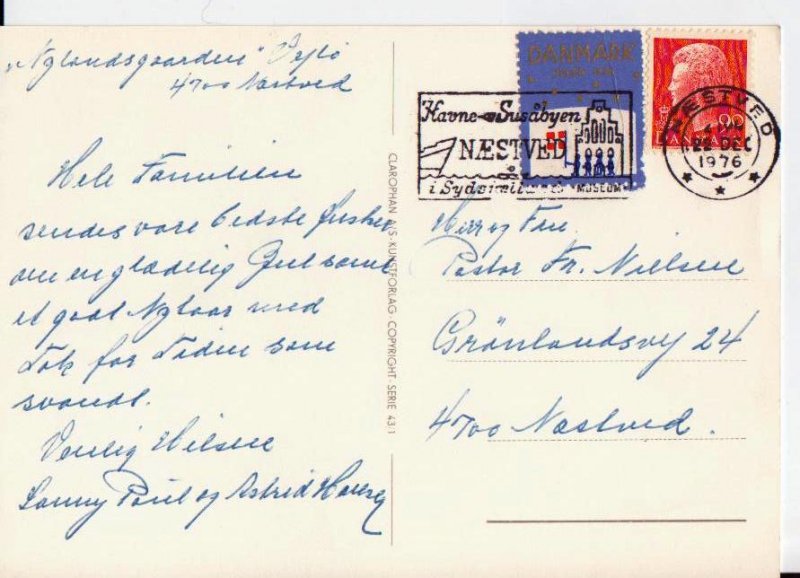 "Nylandsgaarden" Vejlø
4700 Næstved
Hele Familien
sendes vore bedste Ønsker
om en glædelig Jul samt
et godt Nytaar med
Tak for Tiden som
svandt.
Venlig Hilsen
Poul og Astrid
CLAROPHAN KUNSTFORLAG · COPYRIGHT SERIE 431
DANMARK
JULEN
Havne- Susåbyen
NÆSTVED
i Sydsjælland MUSEUM
NÆSTVED
22 DEC
1976
90
Herr og Fru
Pastor Fr. Nielsen
Grönlandsvej 24
4700 Næstved.